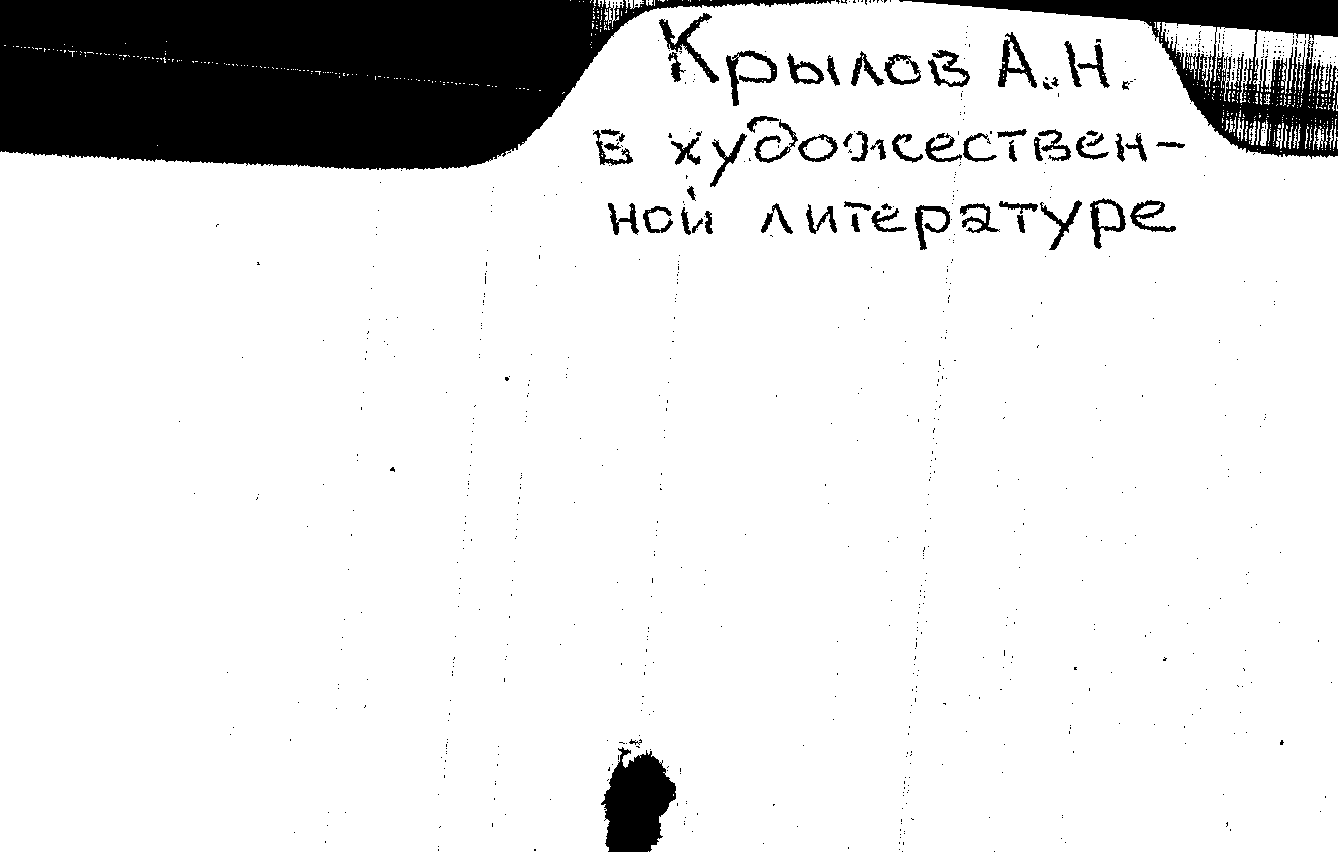 Крылов А.Н.
в художествен-
ной литературе